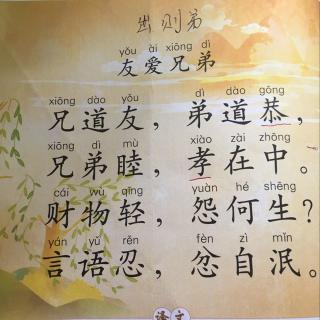 出则弟
yǒu ài xiōng dì
友爱兄弟
xiōng dào yǒu dì dào gōng
兄道友，弟道恭，
xiōng dì mù xiào zài zhōng
兄弟睦，孝在中。
cái wù qīng yuàn hé shēng
财物轻，怨何生？
yán yǔ rěn fèn zì mǐn
言语忍，忿自泯。
译文